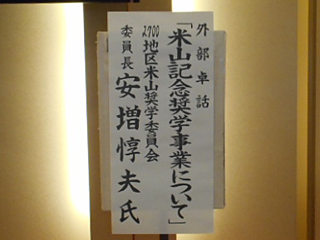 外部卓話
「米山記念奨学事業について」
2700地区米山奨学委員会
委員長 安増惇夫氏